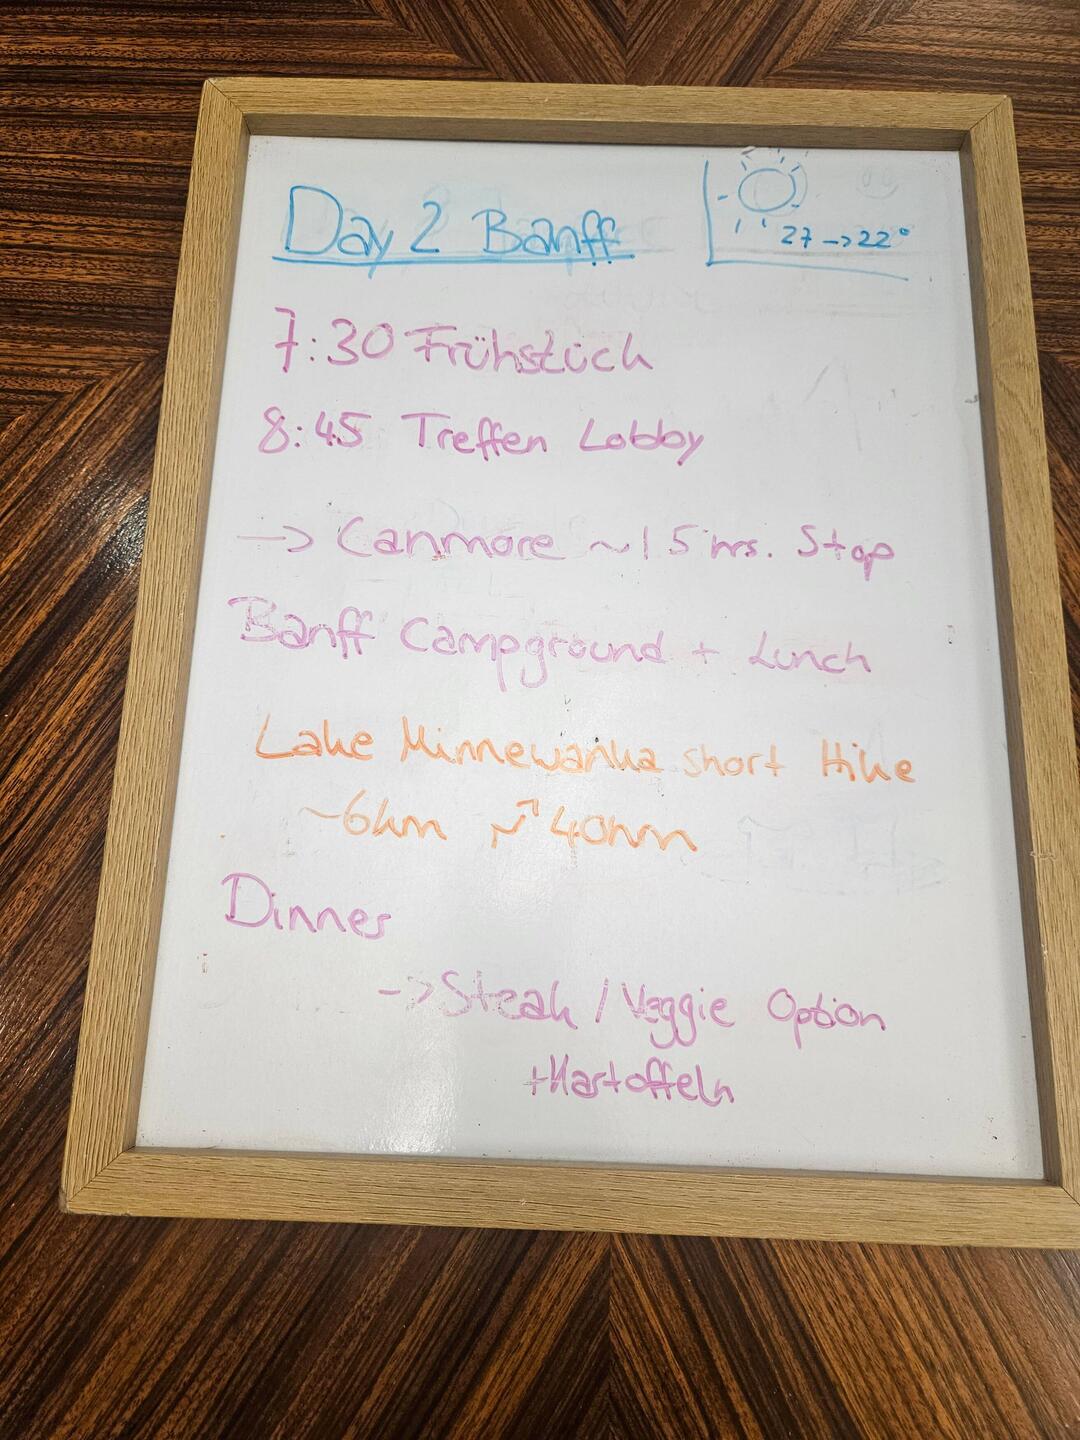 Day 2 Banff
27 -> 22°
7:30 Frühstück
8:45 Treffen Lobby
-> Canmore ~1.5 hrs. Stop
Banff Campground + Lunch
Lake Minnewanka short Hike
~6km ↗ 40hm
Dinner
-> Steak / Veggie Option
+Kartoffeln